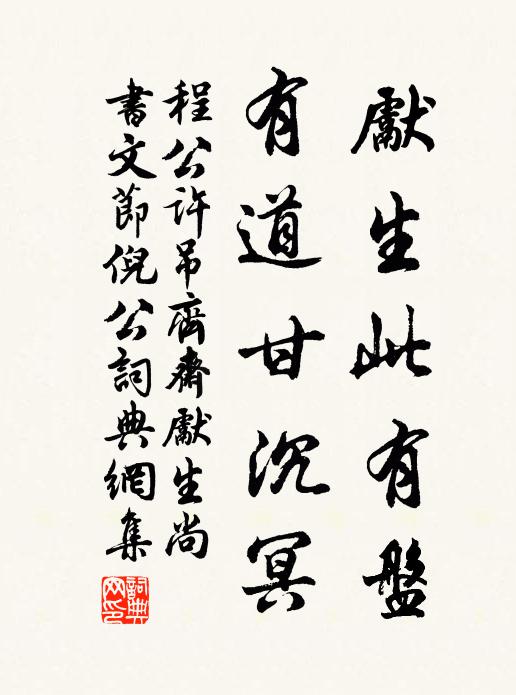 獻生此有盤
有道甘沉冥
程公許吊齊齋獻生尚
書文節倪公詞典網集
詞典網印